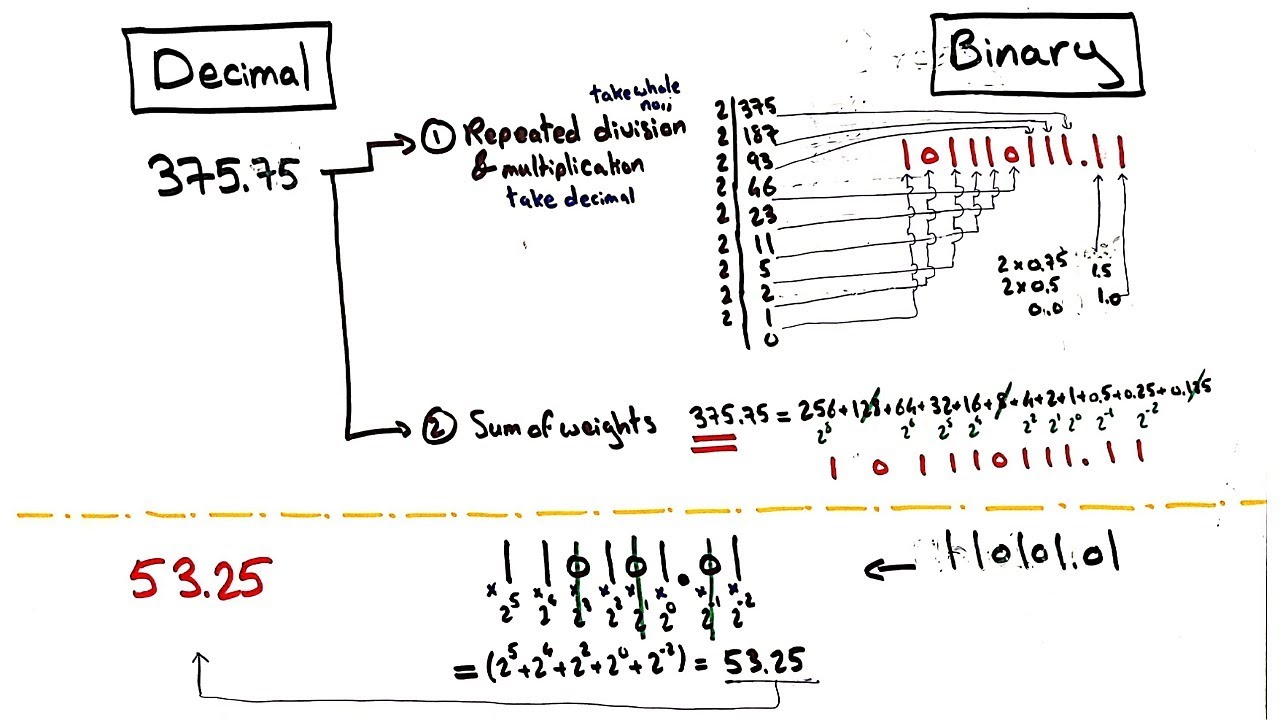 Decimal
Binary
375.75
① Repeated division
take whole
no..
& multiplication
take decimal
2 375
2 187
2 93
2 46
2 23
2 11
2 5
2 2
2 1
0
101110111.11
2×0.75 1.5
2×0.5 1.0
0.0
② Sum of weights
375.75 = 256+128+64+32+16+8+4+2+1+0.5+0.25+0.125
2⁸ 2⁶ 2⁵ 2⁴ 2² 2¹ 2⁰ 2⁻¹ 2⁻²
1 0 1 1 1 0 1 1 1 . 1 1
53.25
1 1 0 1 0 1 . 0 1
← 110101.01
×2⁵ ×2⁴ ×2³ ×2² ×2¹ ×2⁰ ×2⁻¹ ×2⁻²
= (2⁵+2⁴+2²+2⁰+2⁻²) = 53.25